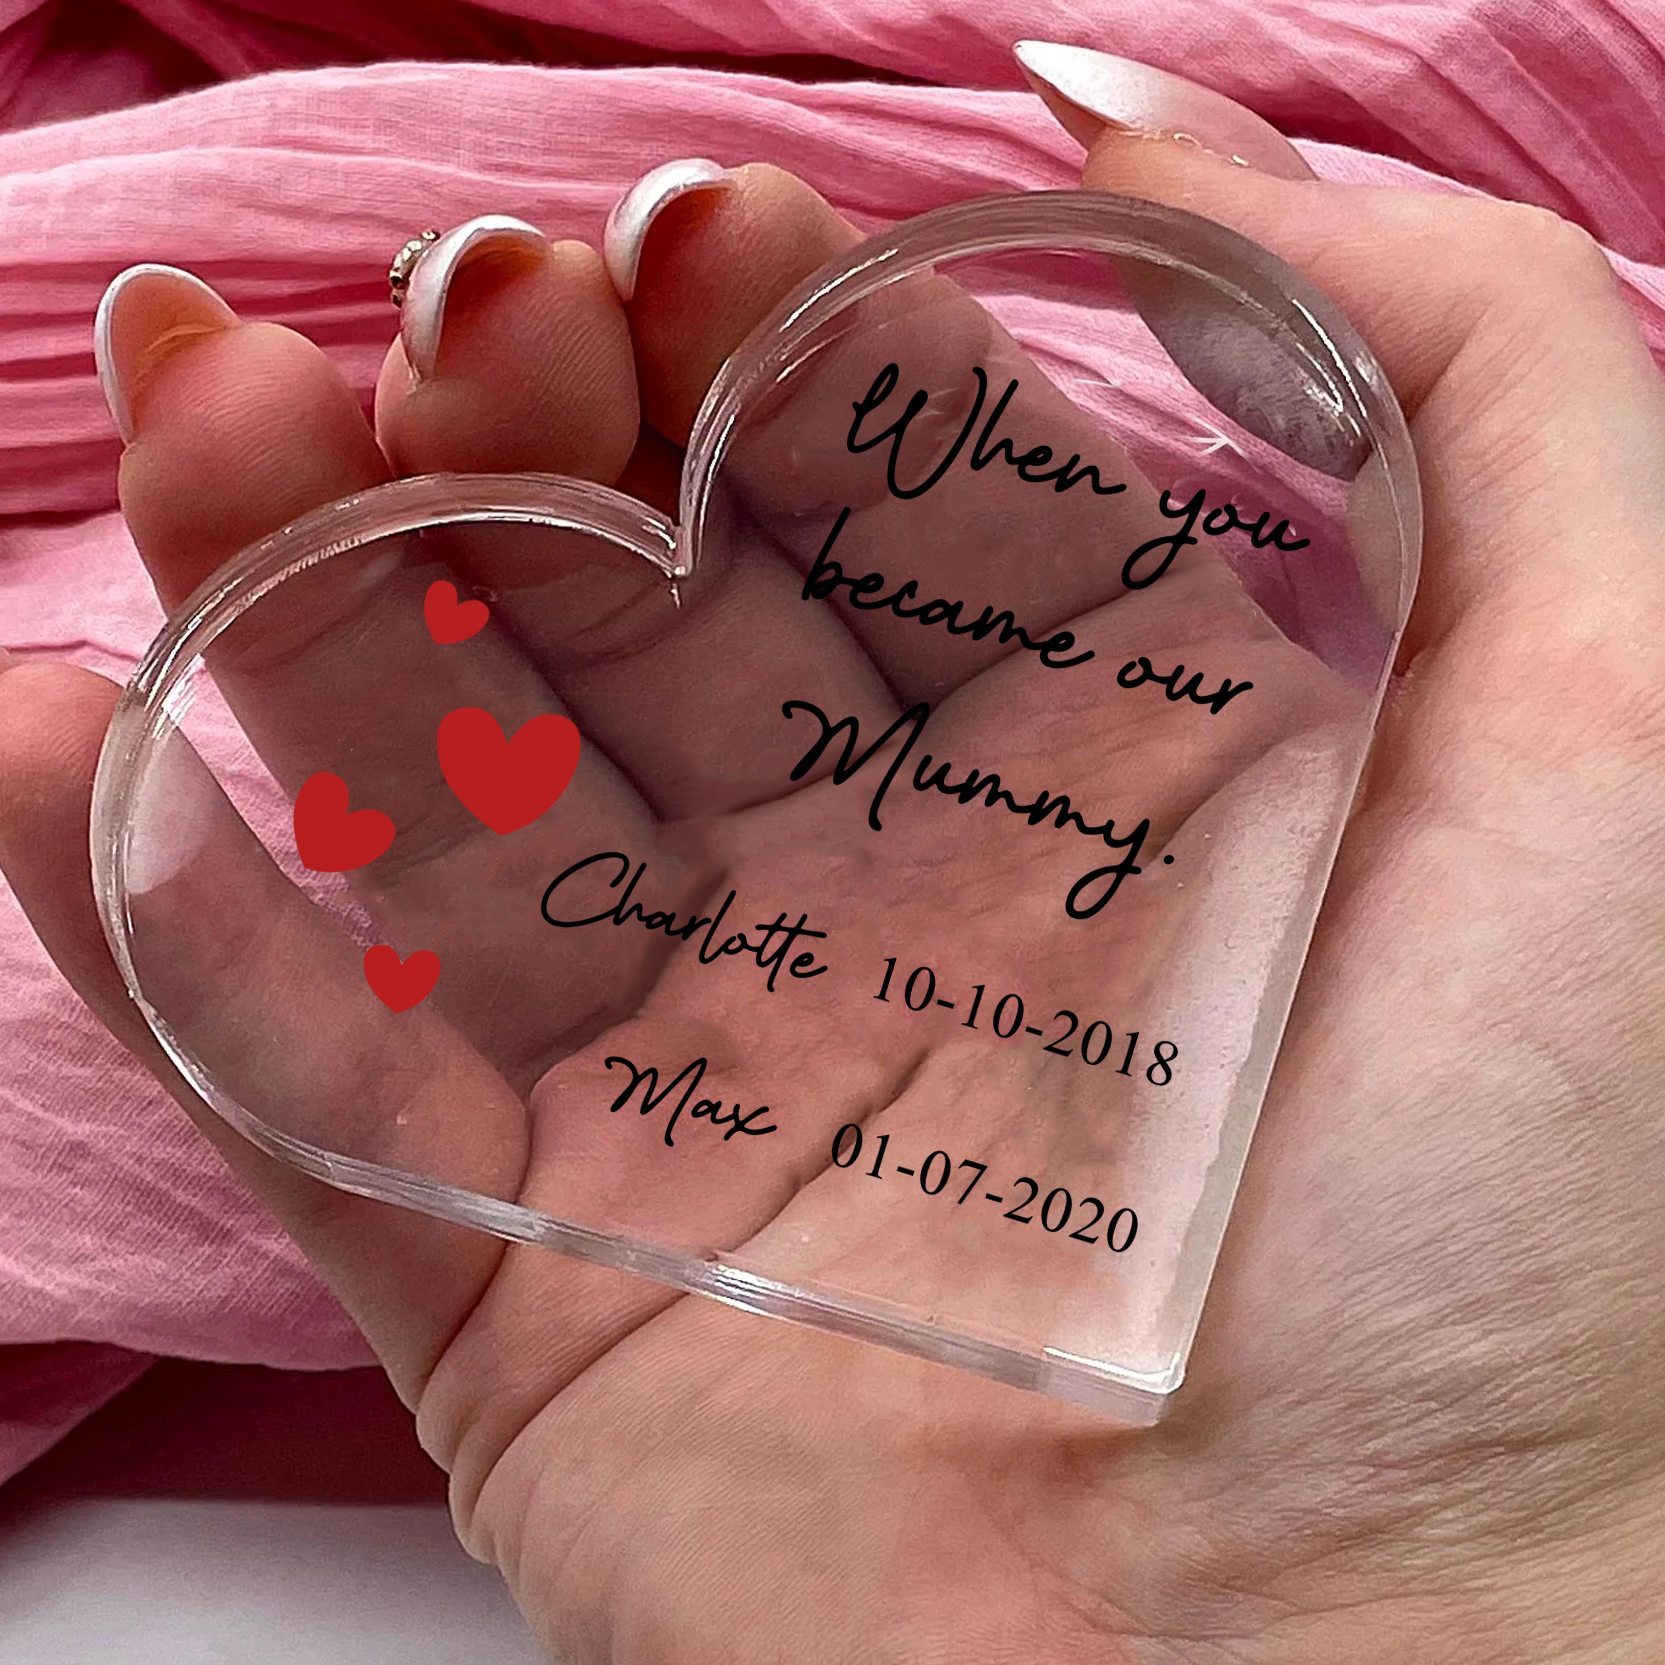 When you
became our
Mummy.
Charlotte 10-10-2018
Max 01-07-2020